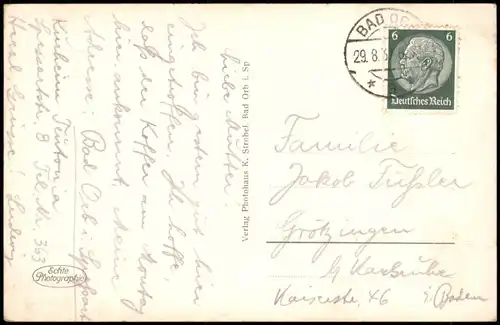 Liebe Mutter!
Ich bin gestern gut hier
eingetroffen. Ich hoffe
daß der Koffer am Montag
hier ankommt. Meine
Adresse: Bad Orb i. Spessart
Kurheim Teutonia
Spessartstr. 8 Tel. Nr. 363
Herzl. Grüsse! Ludwig
Echte
Photographie
Verlag Photohaus K. Strobel, Bad Orb i. Sp
BAD ORB
29.8.3
6 6
Deutsches Reich
Familie
Jakob
Grötzingen
b/ Karlsruhe
Kaiserstr. 46 i. Baden